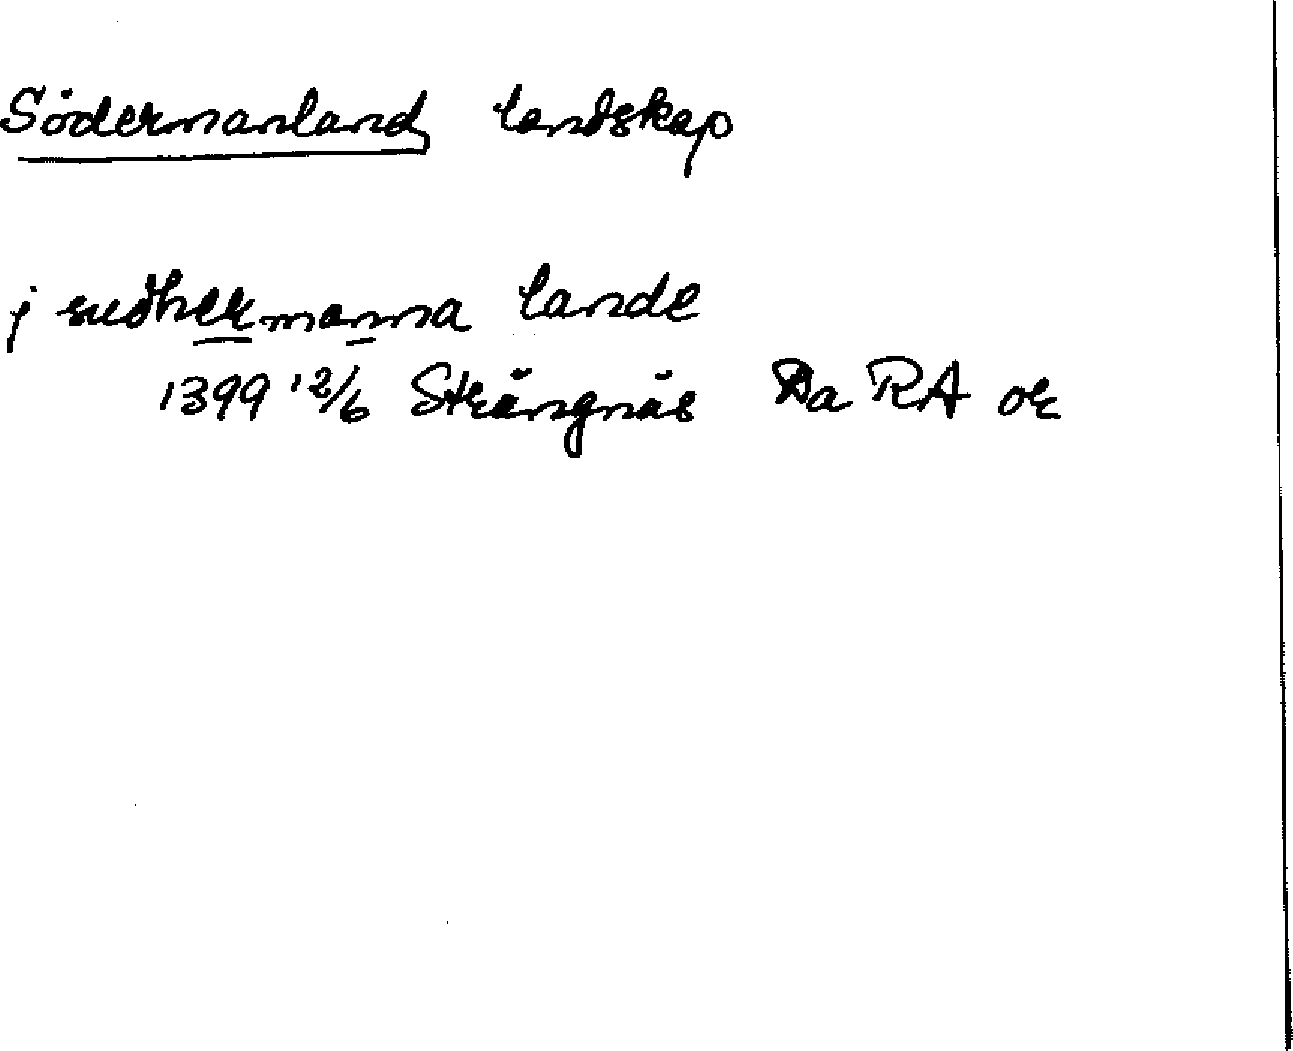 Södermanland landskap
j sudhermanna lande
1399 12/6 Strängnäs Da RA or